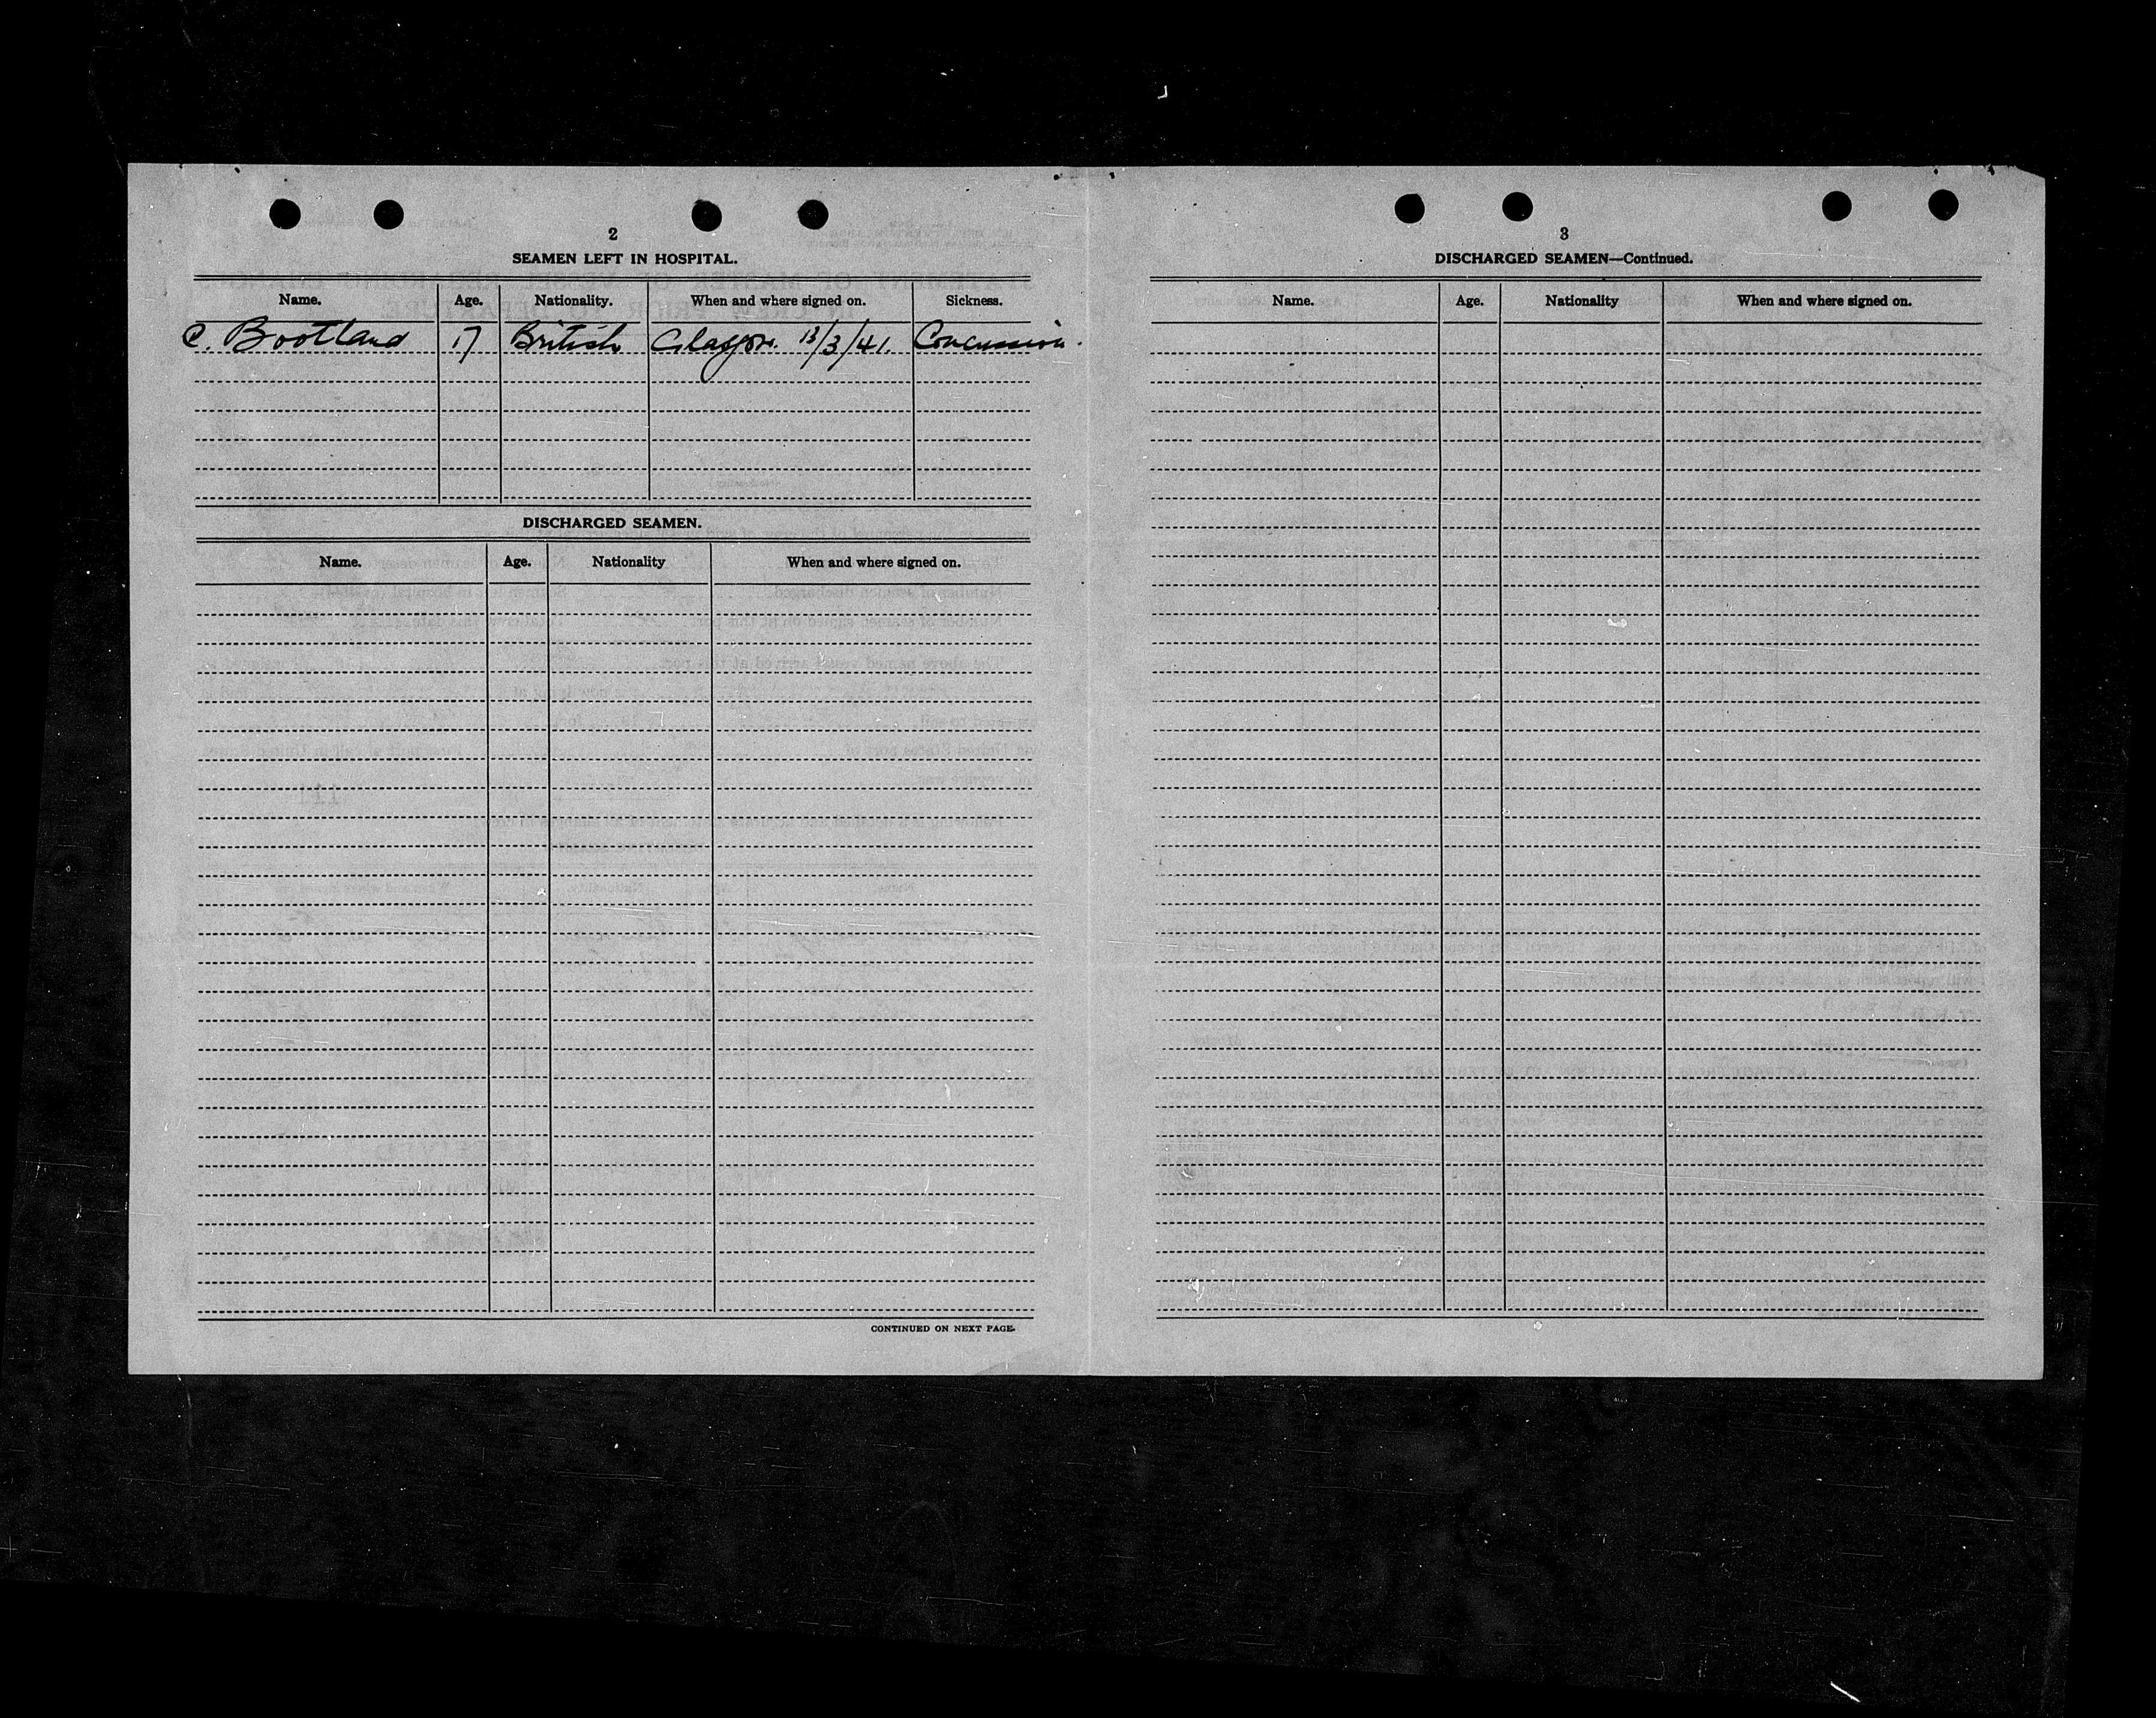 2
SEAMEN LEFT IN HOSPITAL.
Name. Age. Nationality. When and where signed on. Sickness.
C. Bootland 17 British Glasgow. 13/3/41. Concussion.
DISCHARGED SEAMEN.
Name. Age. Nationality When and where signed on.
CONTINUED ON NEXT PAGE.
3
DISCHARGED SEAMEN—Continued.
Name. Age. Nationality When and where signed on.